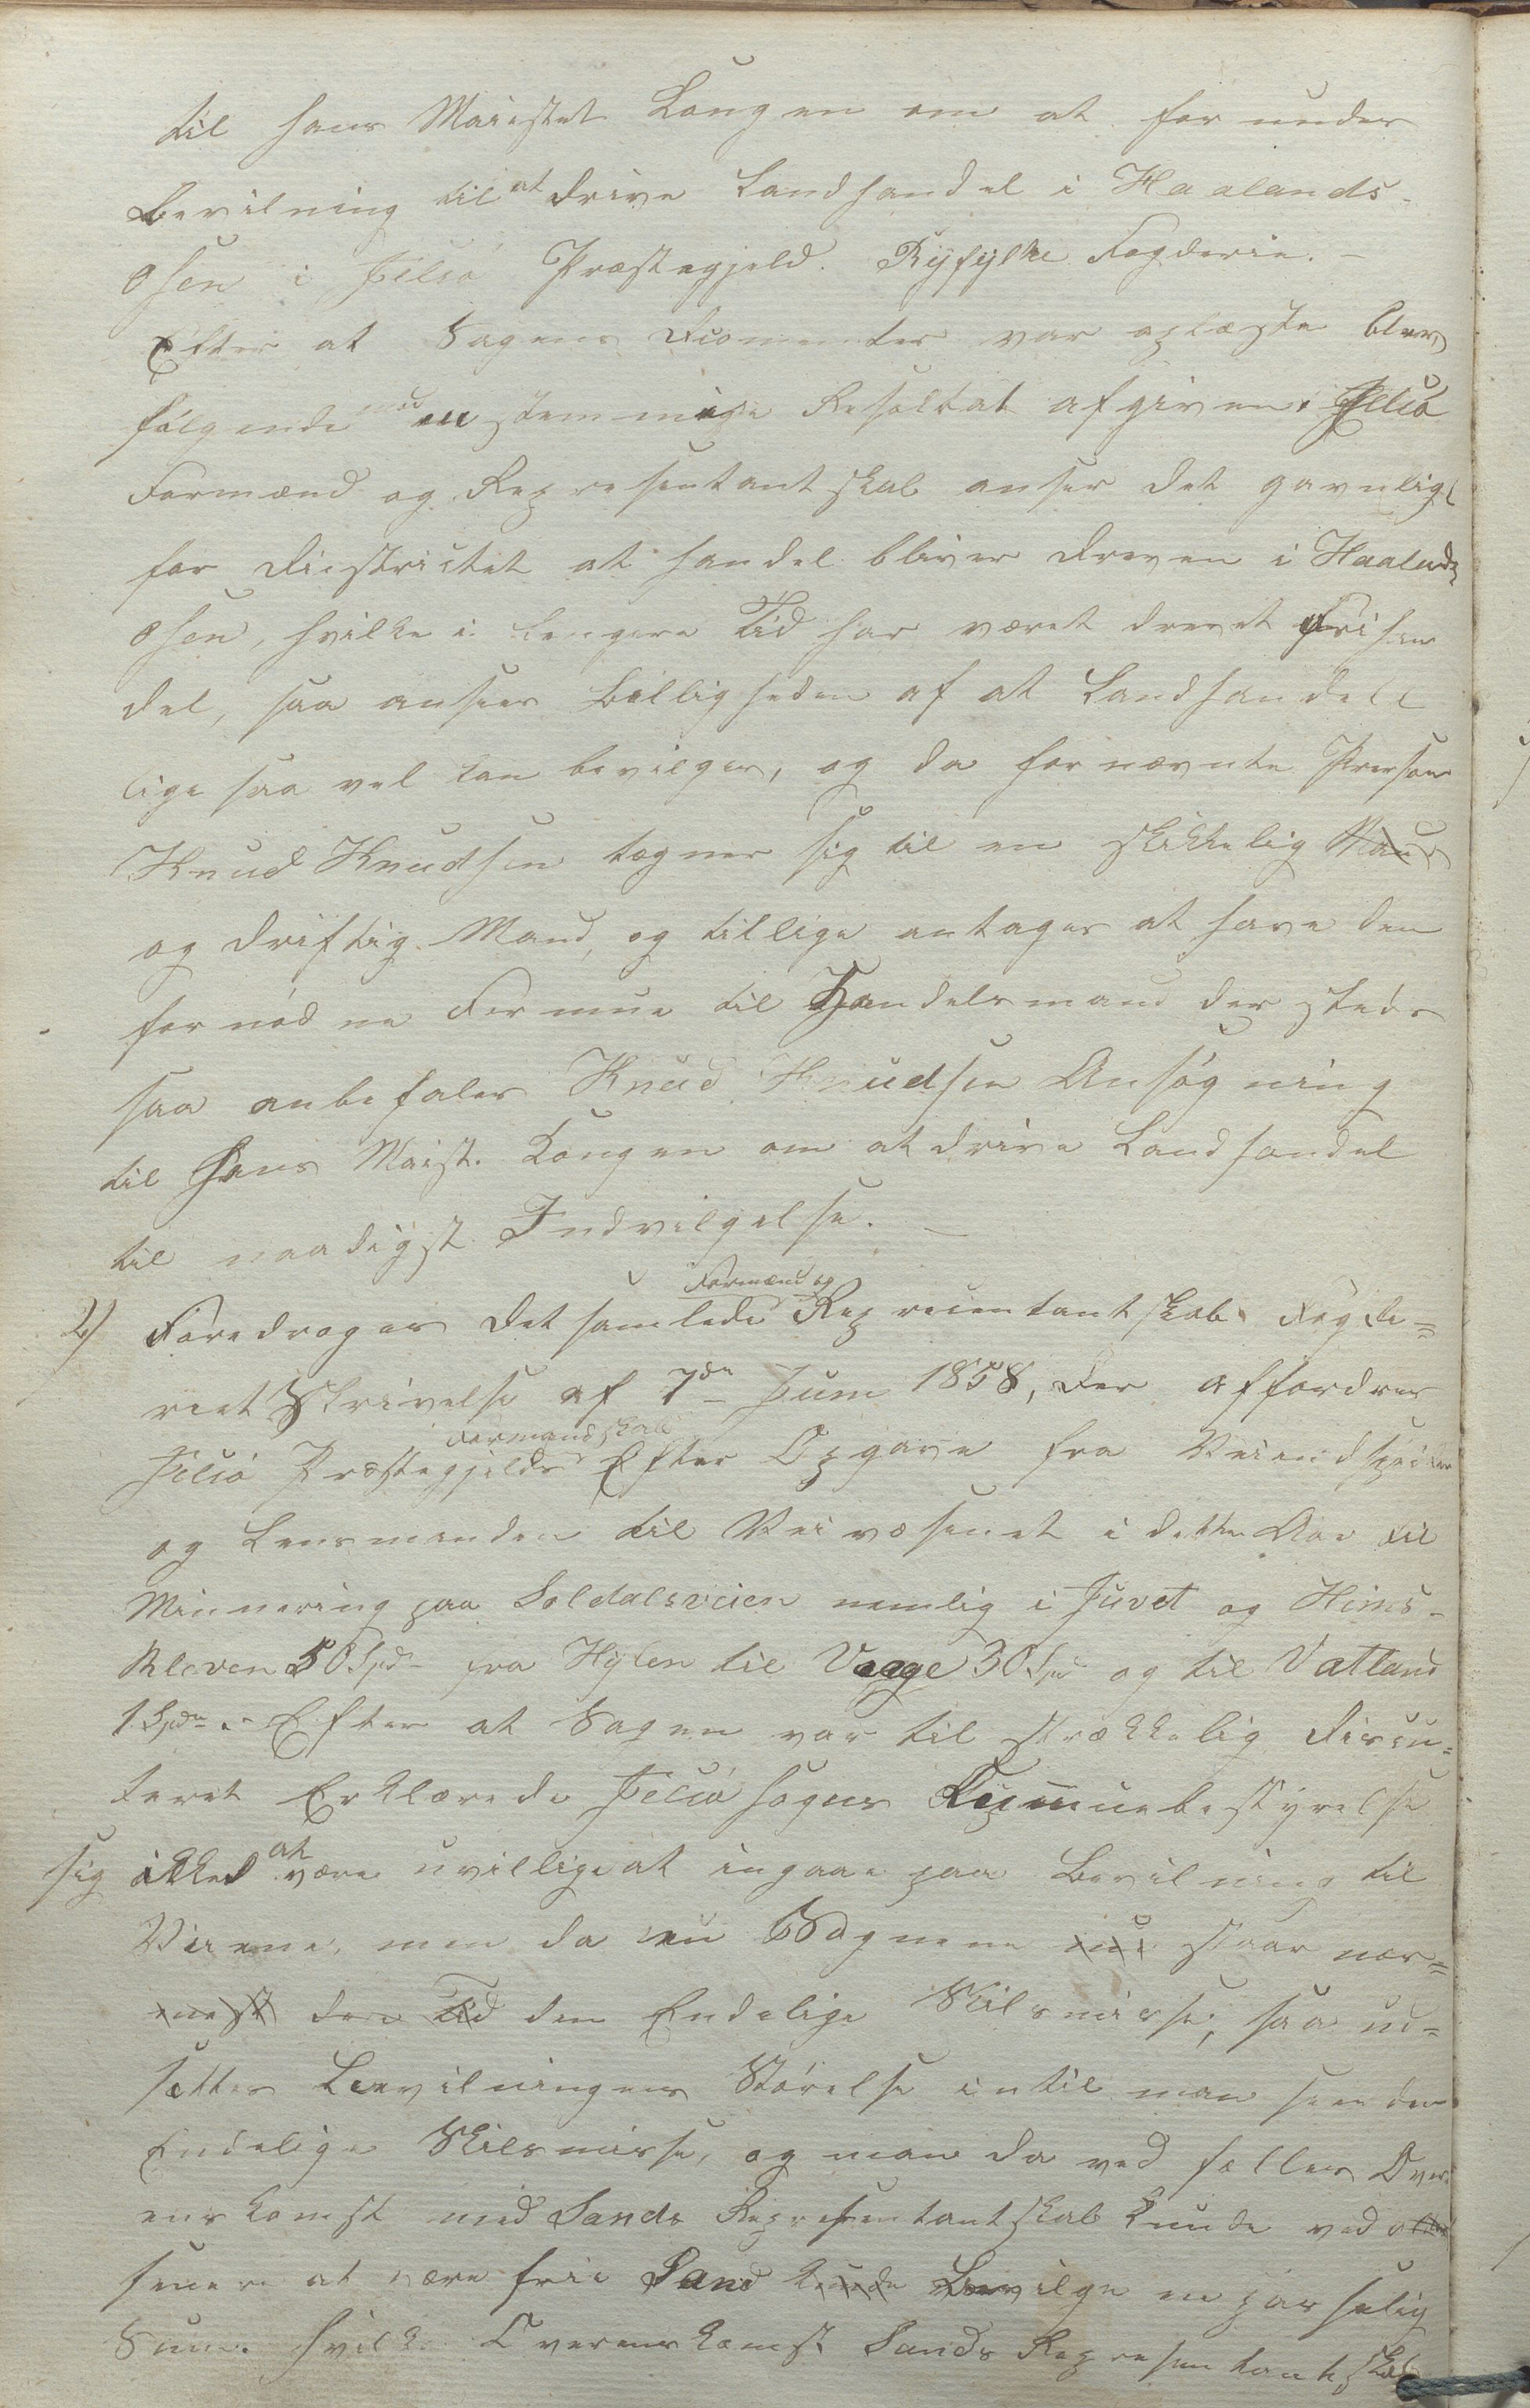 til hans Maiestet Kongen om at for under
Bevilning til at drive Landhandel i Haalands-
Osen i Jelsø Præstegjeld. Ryfylke Fogderie. –
Efter at Sagens Dicomenter var oplæste blev
følgende enstemmige Resoltat afgiven: Jelsø
Formænd og Representantskab anser det gavnligt
for Diestrictet at handel bliver dreven i Haalands
Osen, hvilke i lengere Tid har været drevet Frihan
del, saa ansees Billigheden af at Landhandell
lige saa vel kan bevilges, og da for nævnte Person
Knud Knudsen tegner sig til en skikkelig
og driftig Mand, og tillige antages at have den
for nød ne Formue til Handelsmand der steds
saa anbefales Knud Knudsen Ansøgning
til Hans Maist. Kongen om at drive Landhandel
til naadigst Indvilgelse. –
2) Foredroges det samlede Formænd og Repreientantskab Fogde=
riet Skrivelse af 7de Juni 1858, der affordrer
Jelsø Præstegjelds Formandskab Efter Opgave fra Veiendspeiter
og Lensmanden til Veivæsenet i dette Aar til
Minnering paa Soldalsveien nemlig i Juvet og Hims-
Kleven 50 Spd – fra Hylen til Vaage 30 Spd og til Vatland
1 Spd. – Efter at Sagen var til strækkelig discu=
teret Erklærede Jelsø Sogns Kommuebestyrelse
sig ikke at være uvillige at ingaae paa Bevilning til
Veiene, men da nu Sognene staar nær=
mest den Tid den Endelige Skilsmisse, saa ud=
setter Bevilningens Størelse intil man seer den
Endelige Skilsmisse, og man da ved felles Over
enskomst med Sands Representantskab kunde ved
senere at være frie Sand kunde Bevilge en passelig
Sum. hvilke Overenskomst Sands Representantskab